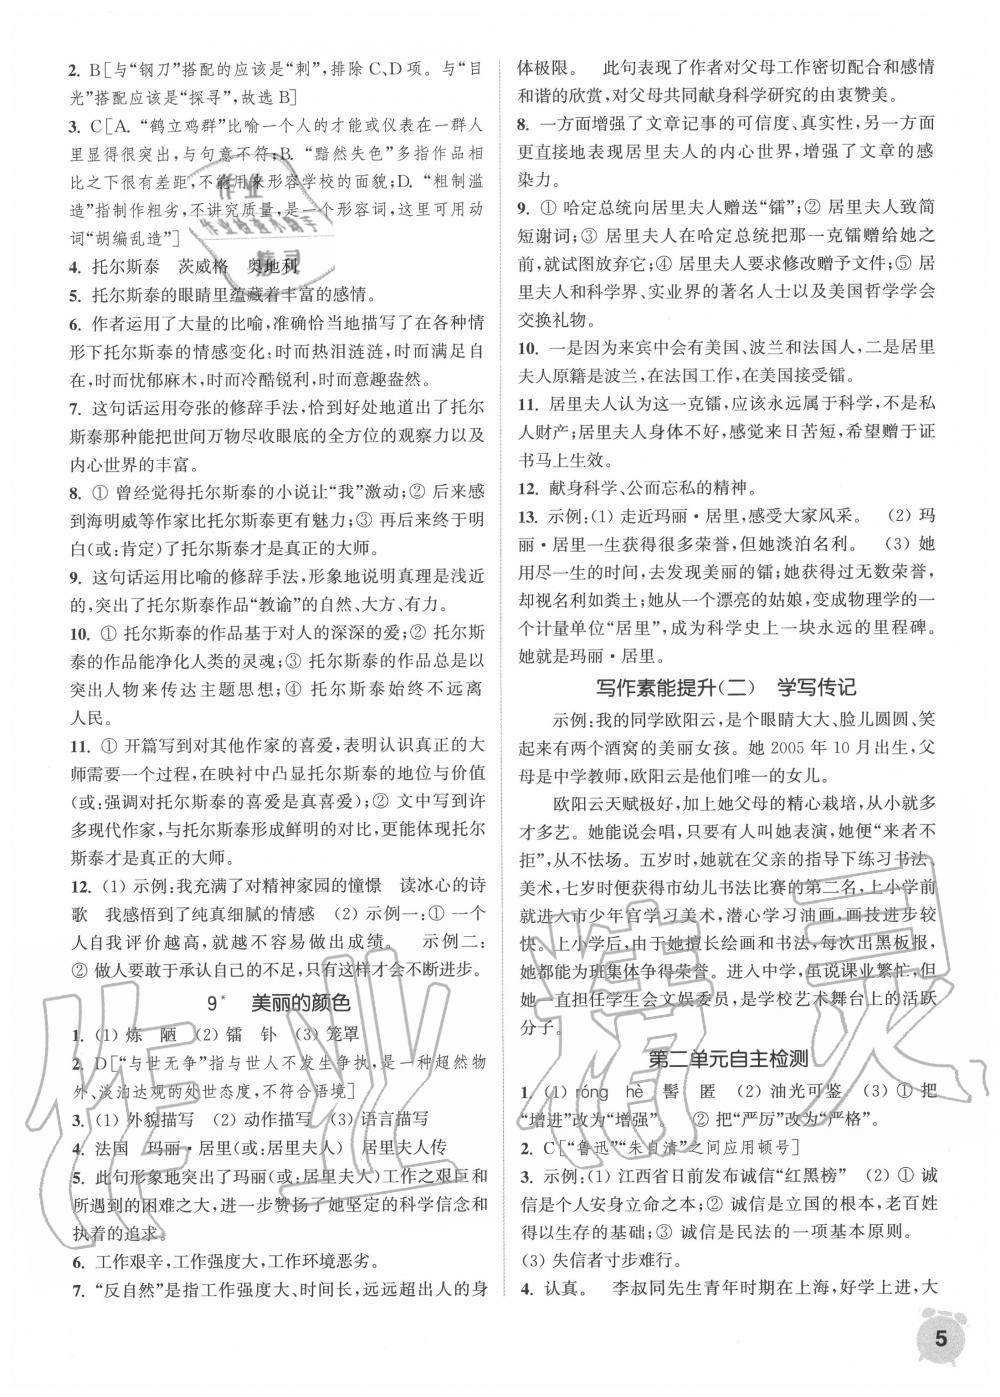 2. B[与“钢刀”搭配的应该是“刺”,排除C、D项。与“目
光”搭配应该是“探寻”,故选B]
3. C[A. “鹤立鸡群”比喻一个人的才能或仪表在一群人
里显得很突出,与句意不符;B. “黯然失色”多指作品相
比之下很有差距,不能用来形容学校的面貌;D. “粗制滥
造”指制作粗劣,不讲究质量,是一个形容词,这里可用动
词“胡编乱造”]
4. 托尔斯泰 茨威格 奥地利
5. 托尔斯泰的眼睛里蕴藏着丰富的感情。
6. 作者运用了大量的比喻,准确恰当地描写了在各种情
形下托尔斯泰的情感变化:时而热泪涟涟,时而满足自
在,时而忧郁麻木,时而冷酷锐利,时而意趣盎然。
7. 这句话运用夸张的修辞手法,恰到好处地道出了托尔
斯泰那种能把世间万物尽收眼底的全方位的观察力以及
内心世界的丰富。
8. ① 曾经觉得托尔斯泰的小说让“我”激动;② 后来感
到海明威等作家比托尔斯泰更有魅力;③ 再后来终于明
白(或:肯定)了托尔斯泰才是真正的大师。
9. 这句话运用比喻的修辞手法,形象地说明真理是浅近
的,突出了托尔斯泰作品“教谕”的自然、大方、有力。
10. ① 托尔斯泰的作品基于对人的深深的爱;② 托尔斯
泰的作品能净化人类的灵魂;③ 托尔斯泰的作品总是以
突出人物来传达主题思想;④ 托尔斯泰始终不远离
人民。
11. ① 开篇写到对其他作家的喜爱,表明认识真正的大
师需要一个过程,在映衬中凸显托尔斯泰的地位与价值
(或:强调对托尔斯泰的喜爱是真喜爱);② 文中写到许
多现代作家,与托尔斯泰形成鲜明的对比,更能体现托尔
斯泰才是真正的大师。
12. (1) 示例:我充满了对精神家园的憧憬 读冰心的诗
歌 我感悟到了纯真细腻的情感 (2) 示例一:① 一个
人自我评价越高,就越不容易做出成绩。 示例二:
② 做人要敢于承认自己的不足,只有这样才会不断进步。
9* 美丽的颜色
1. (1) 炼 陋 (2) 镭 钋 (3) 笼罩
2. D[“与世无争”指与世人不发生争执,是一种超然物
外、淡泊达观的处世态度,不符合语境]
3. (1) 外貌描写 (2) 动作描写 (3) 语言描写
4. 法国 玛丽·居里(或:居里夫人) 居里夫人传
5. 此句形象地突出了玛丽(或:居里夫人)工作之艰巨和
所遇到的困难之大,进一步赞扬了她坚定的科学信念和
执着的追求。
6. 工作艰辛,工作强度大,工作环境恶劣。
7. “反自然”是指工作强度大、时间长,远远超出人的身
体极限。 此句表现了作者对父母工作密切配合和感情
和谐的欣赏,对父母共同献身科学研究的由衷赞美。
8. 一方面增强了文章记事的可信度、真实性,另一方面
更直接地表现居里夫人的内心世界,增强了文章的感
染力。
9. ① 哈定总统向居里夫人赠送“镭”;② 居里夫人致简
短谢词;③ 居里夫人在哈定总统把那一克镭赠给她之
前,就试图放弃它;④ 居里夫人要求修改赠予文件;⑤ 居
里夫人和科学界、实业界的著名人士以及美国哲学学会
交换礼物。
10. 一是因为来宾中会有美国、波兰和法国人,二是居里
夫人原籍是波兰,在法国工作,在美国接受镭。
11. 居里夫人认为这一克镭,应该永远属于科学,不是私
人财产;居里夫人身体不好,感觉来日苦短,希望赠于证
书马上生效。
12. 献身科学、公而忘私的精神。
13. 示例:(1) 走近玛丽·居里,感受大家风采。 (2) 玛
丽·居里一生获得很多荣誉,但她淡泊名利。 (3) 她
用尽一生的时间,去发现美丽的镭;她获得过无数荣誉,
却视名利如粪土;她从一个漂亮的姑娘,变成物理学的一
个计量单位“居里”,成为科学史上一块永远的里程碑。
她就是玛丽·居里。
写作素能提升(二) 学写传记
示例:我的同学欧阳云,是个眼睛大大、脸儿圆圆、笑
起来有两个酒窝的美丽女孩。她 2005 年 10 月出生,父
母是中学教师,欧阳云是他们唯一的女儿。
欧阳云天赋极好,加上她父母的精心栽培,从小就多
才多艺。她能说会唱,只要有人叫她表演,她便“来者不
拒”,从不怯场。五岁时,她就在父亲的指导下练习书法、
美术,七岁时便获得市幼儿书法比赛的第二名,上小学前
就进入市少年宫学习美术,潜心学习油画,技法进步较
快。上小学后,由于她擅长绘画和书法,每次出黑板报,
她都能为班集体争得荣誉。进入中学,虽说课业繁忙,但
她一直担任学生会文娱委员,是学校艺术舞台上的活跃
分子。
第二单元自主检测
1. (1) róng hè 髻 匿 (2) 油光可鉴 (3) ① 把
“增进”改为“增强”。 ② 把“严厉”改为“严格”。
2. C[“鲁迅”“朱自清”之间应用顿号]
3. 示例:(1) 江西省日前发布诚信“红黑榜” (2) ① 诚
信是个人安身立命之本;② 诚信是立国的根本,老百姓
得以生存的基础;③ 诚信是民法的一项基本原则。
(3) 失信者寸步难行。
4. 认真。 李叔同先生青年时期在上海,好学上进,大
5
作业
作业检查小助手
精灵
作业精灵